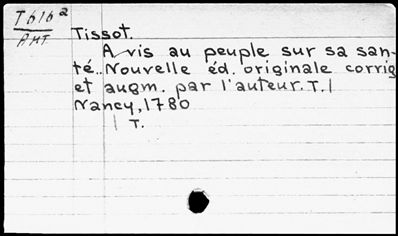 T616²
AMT
Tissot.
Avis au peuple sur sa san-
té.. Nouvelle éd. originale corrig
et augm. par l'auteur. T. I
Nancy, 1780
I T.